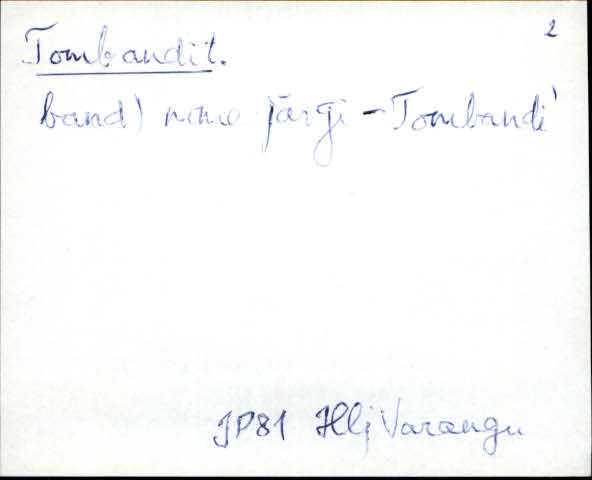 2
Tombandit.
band) nime järgi - Tombandi'
JP81 Hlj Varangu